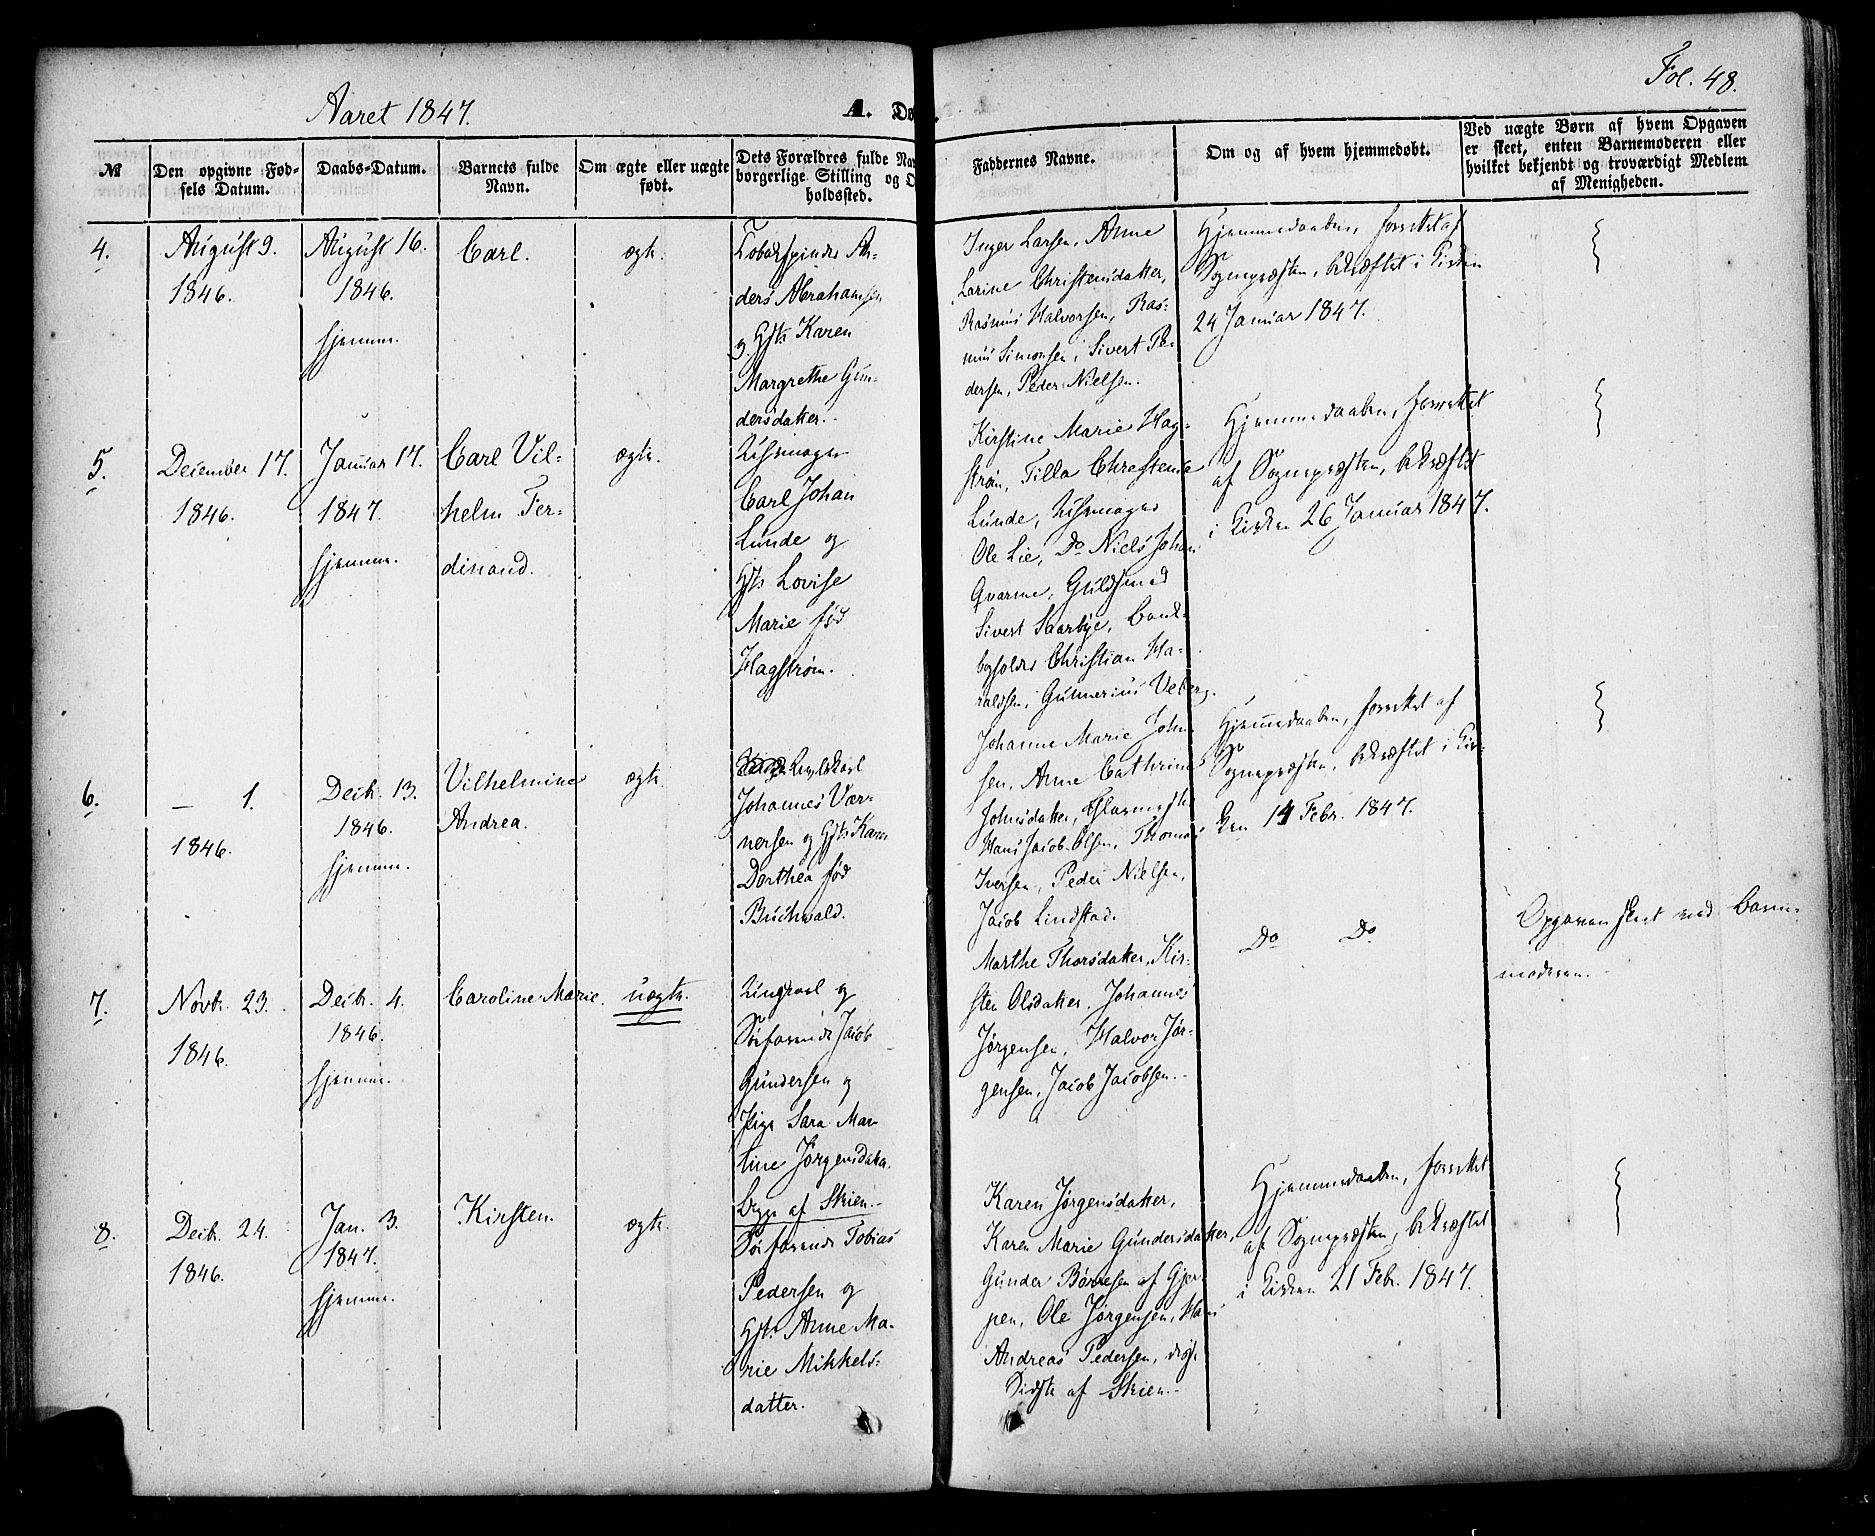 Aaret 1847.
A. Dø
Fol. 48.
№
Den opgivne Fød-
sels Datum.
Daabs-Datum.
Barnets fulde
Navn.
Om ægte eller uægte
født.
Dets Forældres fulde Nav
borgerlige Stilling og O
holdssted.
Faddernes Navne.
Om og af hvem hjemmedøbt.
Ved uægte Børn af hvem Opgaven
er skeet, enten Barnemoderen eller
hvilket bekjendt og troværdigt Medlem
af Menigheden.
4.
August 9.
1846.
August 16.
1846.
hjemme.
Carl.
ægte.
Tobakspinder An-
ders Abrahamsen
og Hst. Karen
Margrethe Gun-
dersdatter.
Inger Larsen, Anne
Larine Christensdatter,
Rasmus Halvorsen, Ras-
mus Simonsen, Sivert Pe-
dersen, Peder Nielsen.
Hjemmedaaben, forrettet af
Sognepræsten, bekræftet i Kirken
24 Januar 1847.
5.
December 17.
1846.
Januar 17.
1847.
hjemme.
Carl Vil-
helm Fer-
dinand.
ægte.
Uhrmager
Carl Johan
Lunde og
Hst. Lovise
Marie fød
Hagstrøm.
Kirstine Marie Hag-
strøm, Tilla Christense
Lunde, Uhrmager
Ole Lie, Do Niels Johan
Qvarme, Guldsmed
Sivert Saarbye,
Christian Ha-
raldsen, Gunnerius Veberg.
Hjemmedaaben, forrettet
af Sognepræsten, bekræftet
i Kirken 26 Januar 1847.
6.
— 1.
1846.
Decbr. 13.
1846.
hjemme.
Vilhelmine
Andrea.
ægte
Johannes Vær-
nersen og Hst. Karen
Dorthea fød
Buchwald.
Johanne Marie John-
sen, Anne Cathrine
Johnsdatter, Glarmester
Hans Jacob Olsen, Thomas
Iversen, Peder Nielsen,
Jacob Lindstad.
Hjemmedaaben, forrettet af
Sognepræsten, bekræftet i Kir-
ken 14 Febr. 1847.
7.
Novbr. 23.
1846.
Decbr. 4.
1846.
hjemme.
Caroline Marie.
uægte.
Ungkarl og
Søfarende Jacob
Gundersen og
Pige Sara Mar-
tine Jørgensdatter.
Begge af Skien.
Marthe Thorsdatter, Kir-
sten Olsdatter, Johannes
Jørgensen, Halvor Jør-
gensen, Jacob Jacobsen.
Do Do
Opgaven skeet ved Barne-
moderen.
8.
Decbr. 24.
1846.
Jan. 3.
1847.
hjemme.
Kirsten.
ægte.
Søfarende Tobias
Pedersen og
Hst. Anne Ma-
rie Mikkels-
datter.
Karen Jørgensdatter,
Karen Marie Gundersdatter,
Gunder Børresen af Gjer-
pen, Ole Jørgensen, Hans
Andreas Pedersen, de
Sidste af Skien.
Hjemmedaaben, forrettet
af Sognepræsten, bekræftet
i Kirken 21 Febr. 1847.